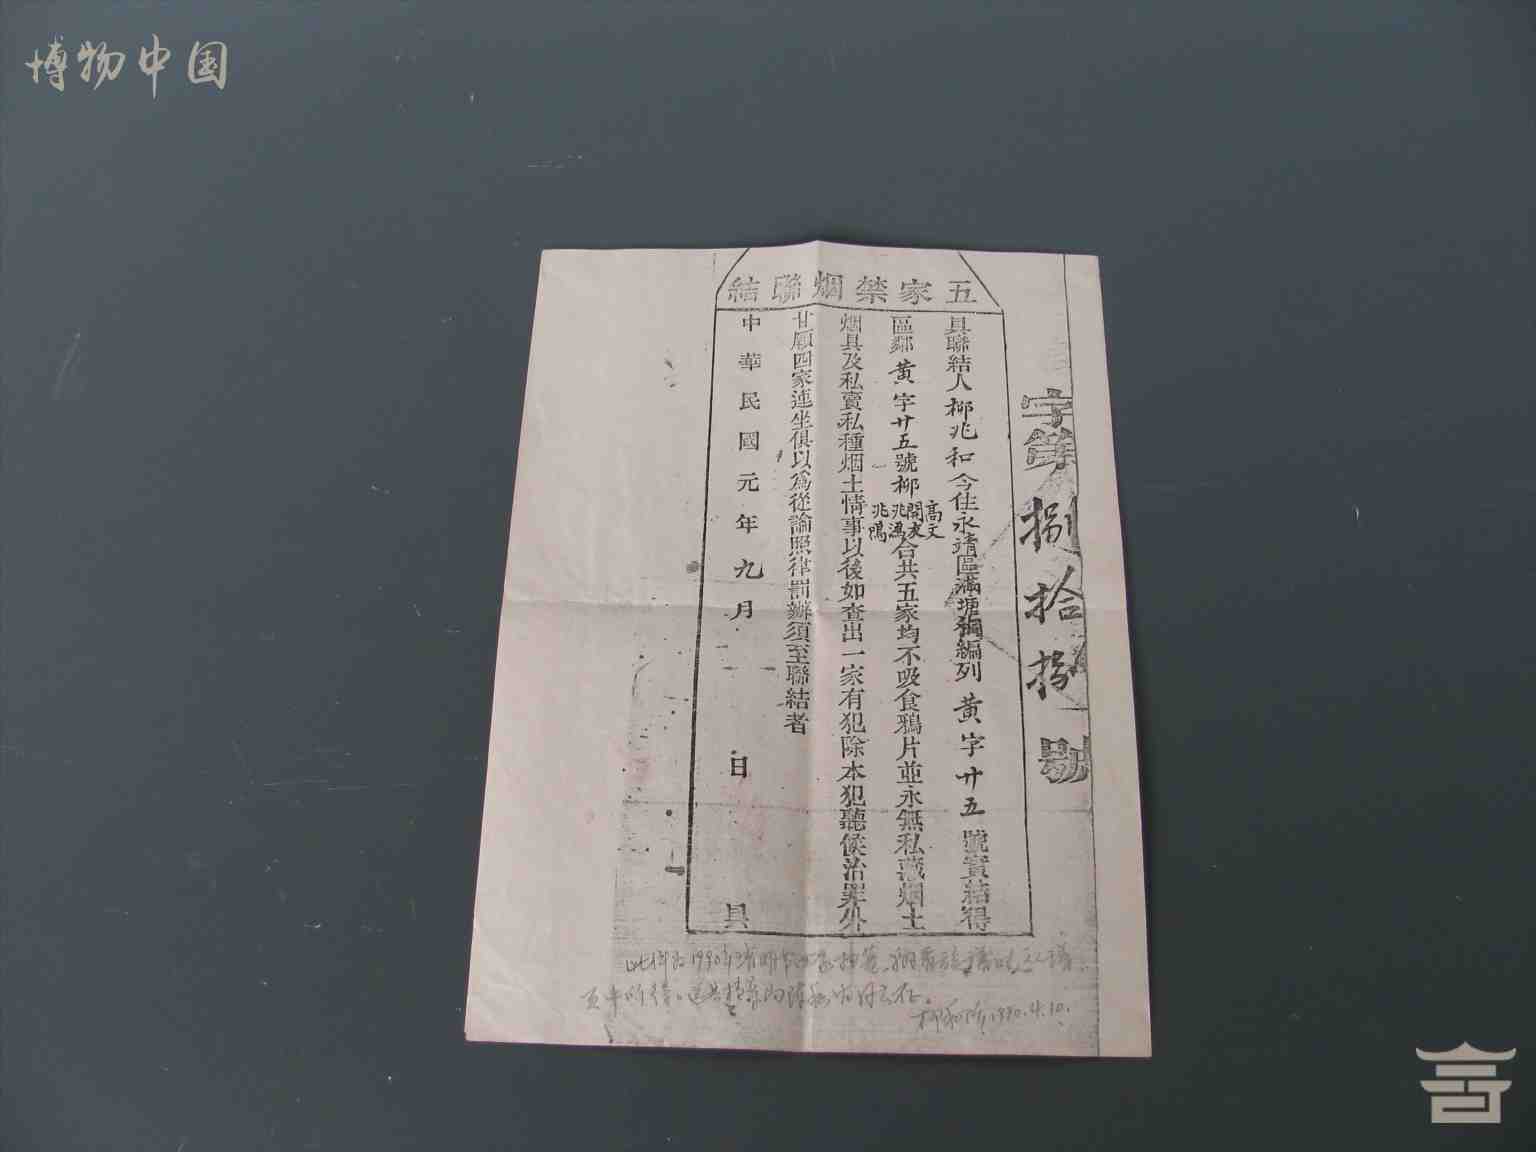 博物中国
字第捌拾捌號
五家禁烟聯結
具聯結人柳兆和今住永靖區滿塘鄉編列黃字廿五號實結得
區鄰黃字廿五號柳高文開友兆馮兆鴻合共五家均不吸食鴉片並永無私藏烟土
烟具及私賣私種烟土情事以後如查出一家有犯除本犯聽候治罪外
甘願四家連坐俱以爲從論照律罰辦須至聯結者
中華民國元年九月 日 具
此件为1990年
1990.4.10.